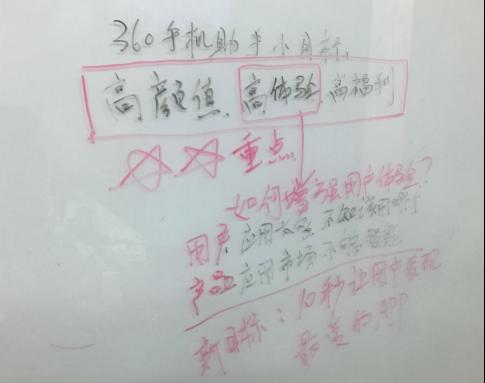 360手机助手小目标
高颜值 高体验 高福利
重点
如何增强用户体验?
用户 应用太多 不知该用哪个
产品 应用市场 不够智能
新目标:10秒让用户发现
最美的APP